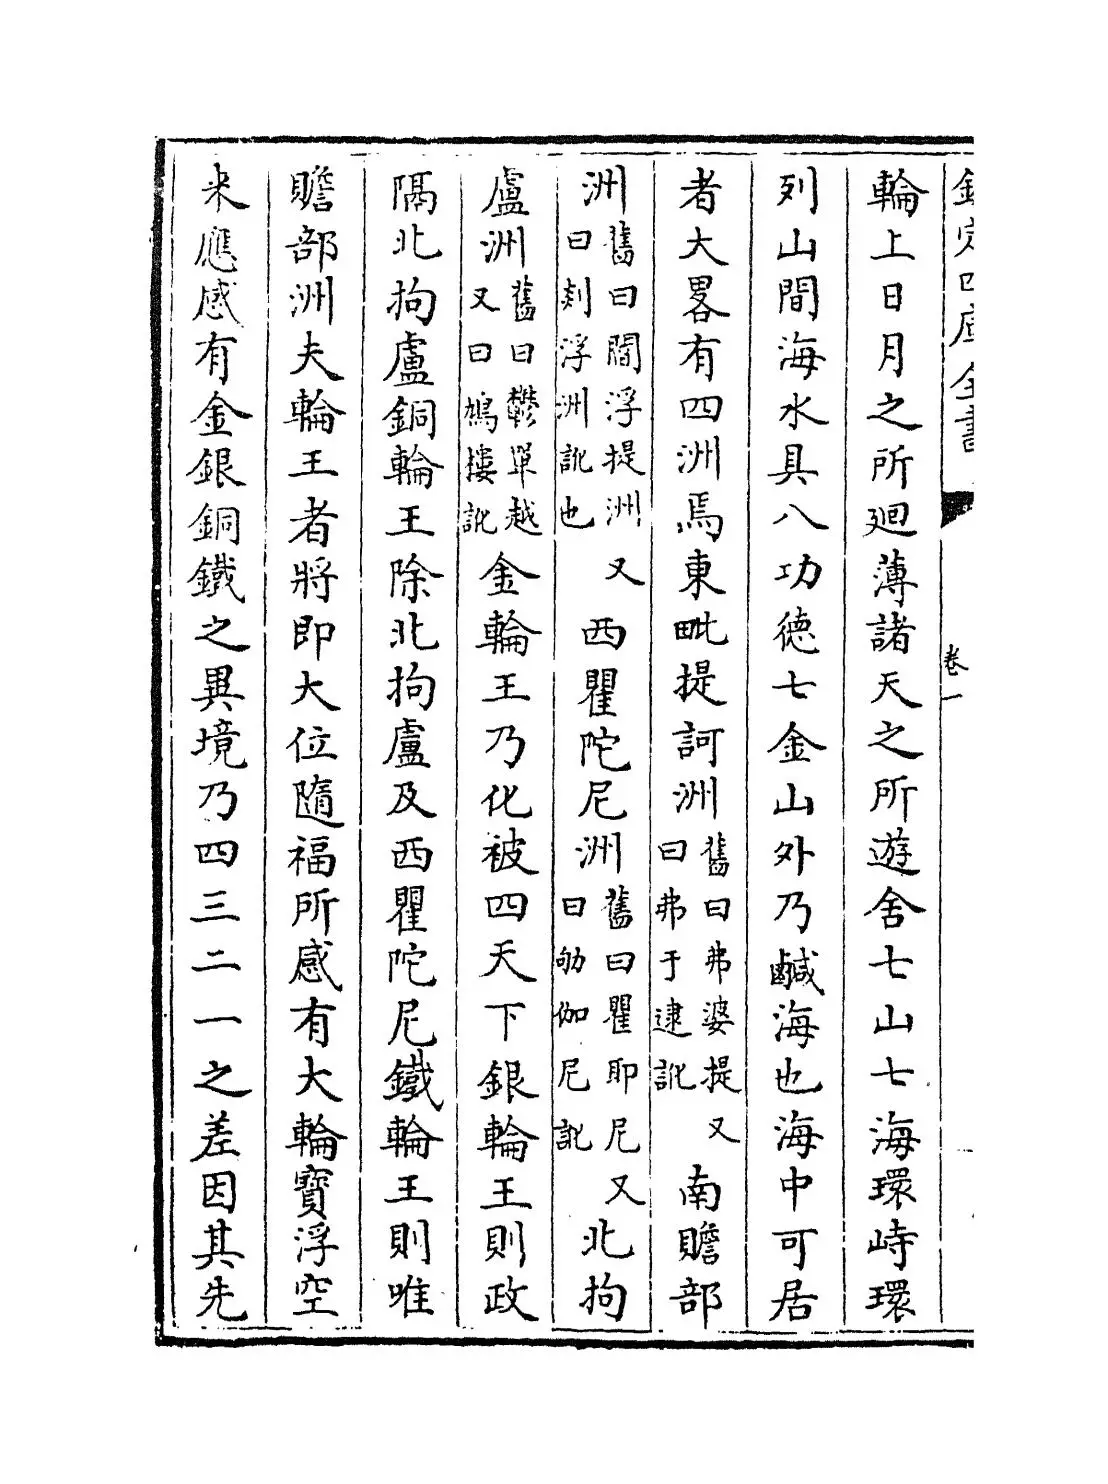 欽定四庫全書 卷一
輪上日月之所廻薄諸天之所遊舍七山七海環峙環
列山間海水具八功德七金山外乃鹹海也海中可居
者大畧有四洲焉東毗提訶洲舊曰弗婆提又曰弗于逮訛南贍部
洲舊曰閻浮提洲又曰剡浮洲訛也西瞿陀尼洲舊曰瞿耶尼又曰劬伽尼訛北拘
盧洲舊曰鬱單越又曰鳩摟訛金輪王乃化被四天下銀輪王則政
隔北拘盧銅輪王除北拘盧及西瞿陀尼鐵輪王則唯
贍部洲夫輪王者將即大位隨福所感有大輪寶浮空
来應感有金銀銅鐵之異境乃四三二一之差因其先